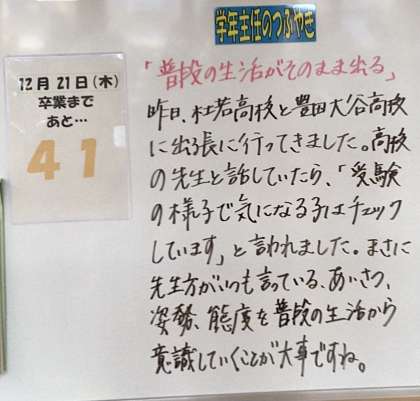 学年主任のつぶやき
12月21日(木)
卒業まで
あと…
41
「普段の生活がそのまま出る」
昨日、杜若高校と豊田大谷高校
に出張に行ってきました。高校
の先生と話していたら、「受験
の様子で気になる子はチェック
しています」と言われました。まさに
先生方がいつも言っている、あいさつ、
姿勢、態度を普段の生活から
意識していくことが大事ですね。